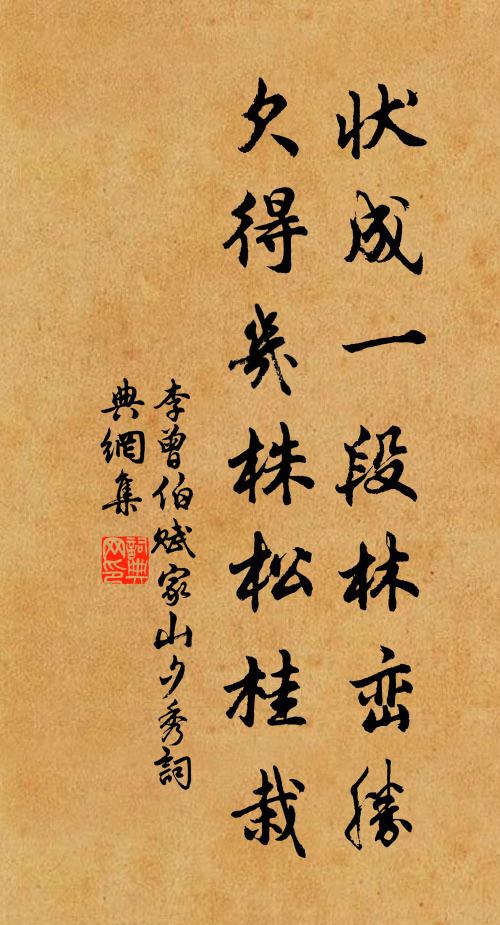 状成一段林峦勝
欠得幾株松桂栽
李曾伯赋家山夕秀詞
典網集
詞典
网印